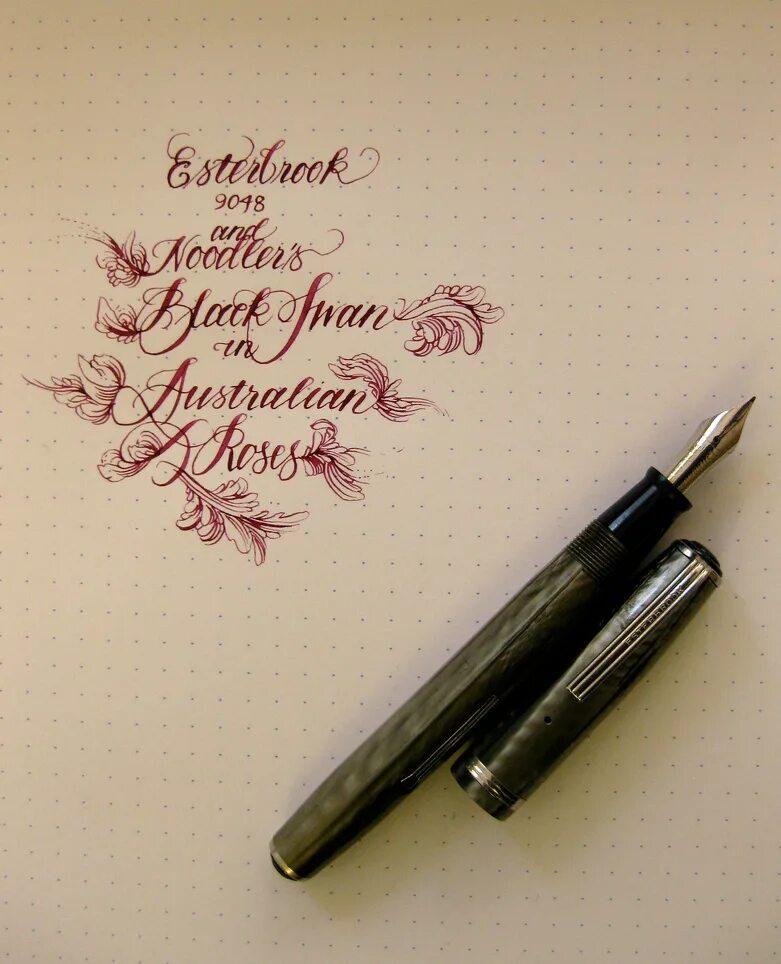 Esterbrook
9048
and
Noodler's
Black Swan
in
Australian
Roses
ESTERBROOK